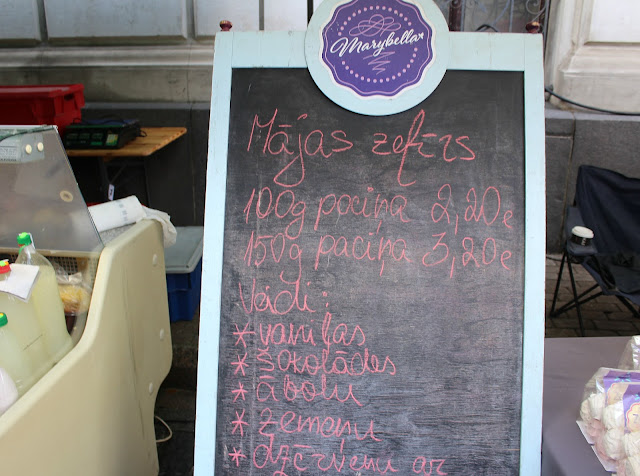 Marybella
Mājas zefīrs
100g paciņa 2,20€
150g paciņa 3,20€
Veidi:
*vaniļas
*šokolādes
*ābolu
*zemeņu
*dzērveņu ar